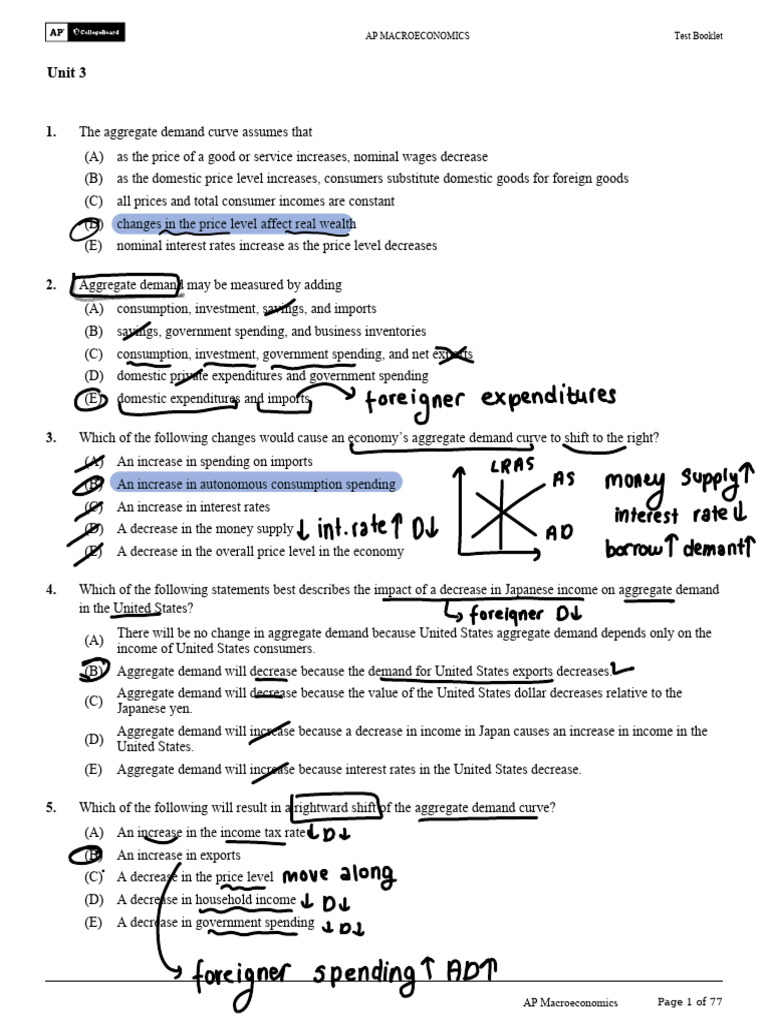 AP CollegeBoard
AP MACROECONOMICS
Test Booklet
Unit 3
1. The aggregate demand curve assumes that
(A) as the price of a good or service increases, nominal wages decrease
(B) as the domestic price level increases, consumers substitute domestic goods for foreign goods
(C) all prices and total consumer incomes are constant
(D) changes in the price level affect real wealth
(E) nominal interest rates increase as the price level decreases
2. Aggregate demand may be measured by adding
(A) consumption, investment, savings, and imports
(B) savings, government spending, and business inventories
(C) consumption, investment, government spending, and net exports
(D) domestic private expenditures and government spending
(E) domestic expenditures and imports
foreigner expenditures
3. Which of the following changes would cause an economy's aggregate demand curve to shift to the right?
(A) An increase in spending on imports
(B) An increase in autonomous consumption spending
(C) An increase in interest rates
(D) A decrease in the money supply ↓ int.rate↑ D↓
(E) A decrease in the overall price level in the economy
LRAS
AS
AD
money supply↑
interest rate↓
borrow↑ demant↑
4. Which of the following statements best describes the impact of a decrease in Japanese income on aggregate demand
in the United States?
foreigner D↓
(A) There will be no change in aggregate demand because United States aggregate demand depends only on the
income of United States consumers.
(B) Aggregate demand will decrease because the demand for United States exports decreases.
(C) Aggregate demand will decrease because the value of the United States dollar decreases relative to the
Japanese yen.
(D) Aggregate demand will increase because a decrease in income in Japan causes an increase in income in the
United States.
(E) Aggregate demand will increase because interest rates in the United States decrease.
5. Which of the following will result in a rightward shift of the aggregate demand curve?
(A) An increase in the income tax rate ↓ D↓
(B) An increase in exports
(C) A decrease in the price level move along
(D) A decrease in household income ↓ D↓
(E) A decrease in government spending ↓ D↓
foreigner spending↑ AD↑
AP Macroeconomics
Page 1 of 77